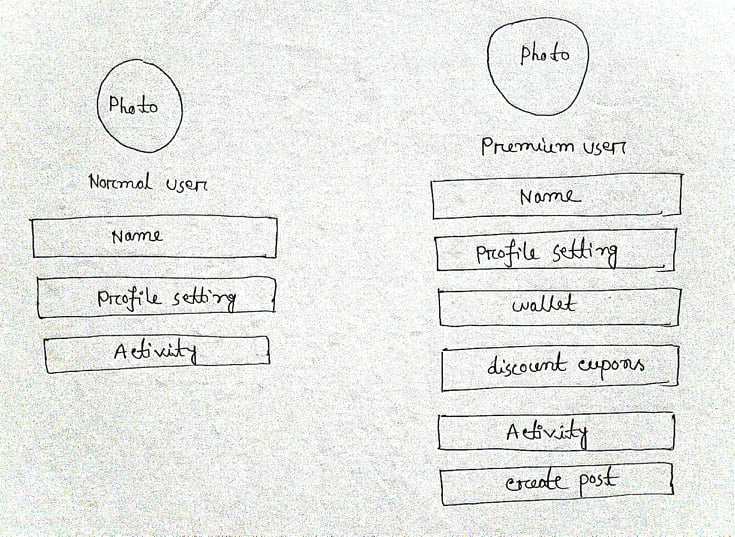 Photo
Normal user
Name
Profile setting
Activity
Photo
Premium user
Name
Profile setting
wallet
discount cupons
Activity
create post